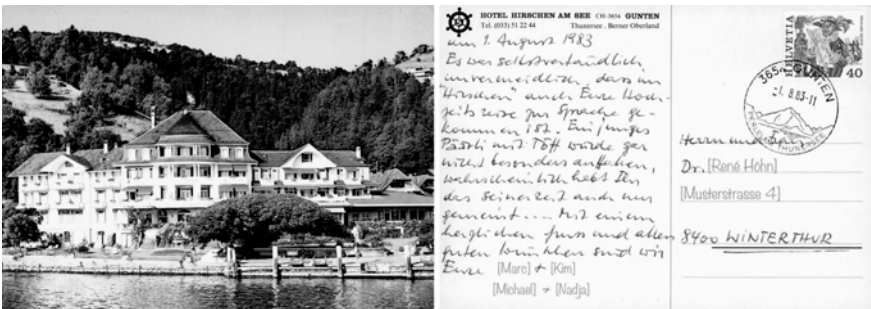 HOTEL HIRSCHEN AM SEE CH-3654 GUNTEN
Tel. (033) 51 22 44 Thunersee, Berner Oberland
am 1. August 1983
Es war selbstverständlich
unvermeidlich, dass im
"Hirschen" auch Eure Hoch-
zeitsreise zur Sprache ge-
kommen ist. Ein junges
Päärli mit Töff würde gar
nicht besonders auffallen,
wahrscheinlich habt Ihr
das seinerzeit auch nur
gemeint.... Mit einem
herzlichen Gruss und allen
guten Wünschen sind wir
Eure [Marc] + [Kim]
[Michael] + [Nadja]
HELVETIA
40
3654 GUNTEN
-1. 8.83-11
Herrn und Frau
Dr. [René Höhn]
[Musterstrasse 4]
8400 WINTERTHUR